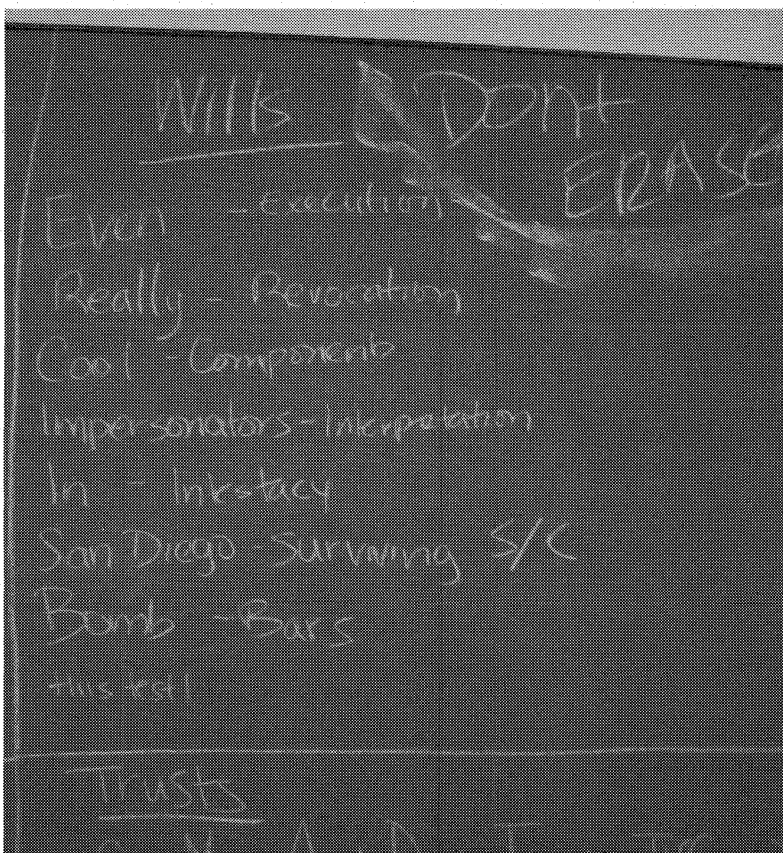 Wills Dont
ERASE
Even - Execution
Really - Revocation
Cool - Components
Impersonators - Interpretation
In - Intestacy
San Diego - Surviving S/C
Bomb - Bars
this test!
Trusts